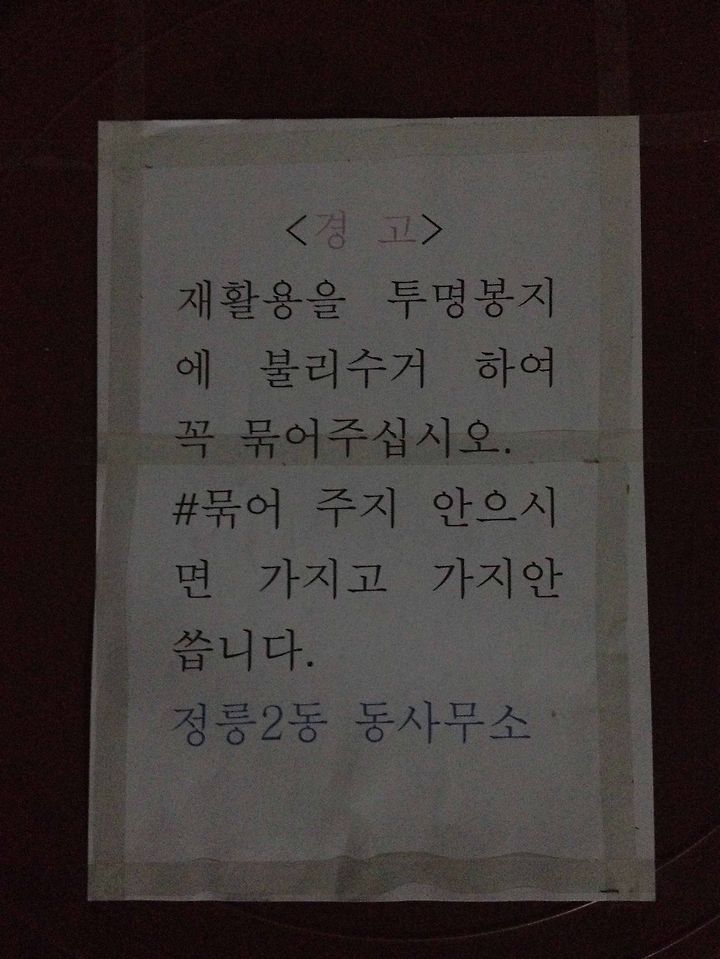 <경 고>
재활용을 투명봉지
에 불리수거 하여
꼭 묶어주십시오.
#묶어 주지 안으시
면 가지고 가지안
씁니다.
정릉2동 동사무소